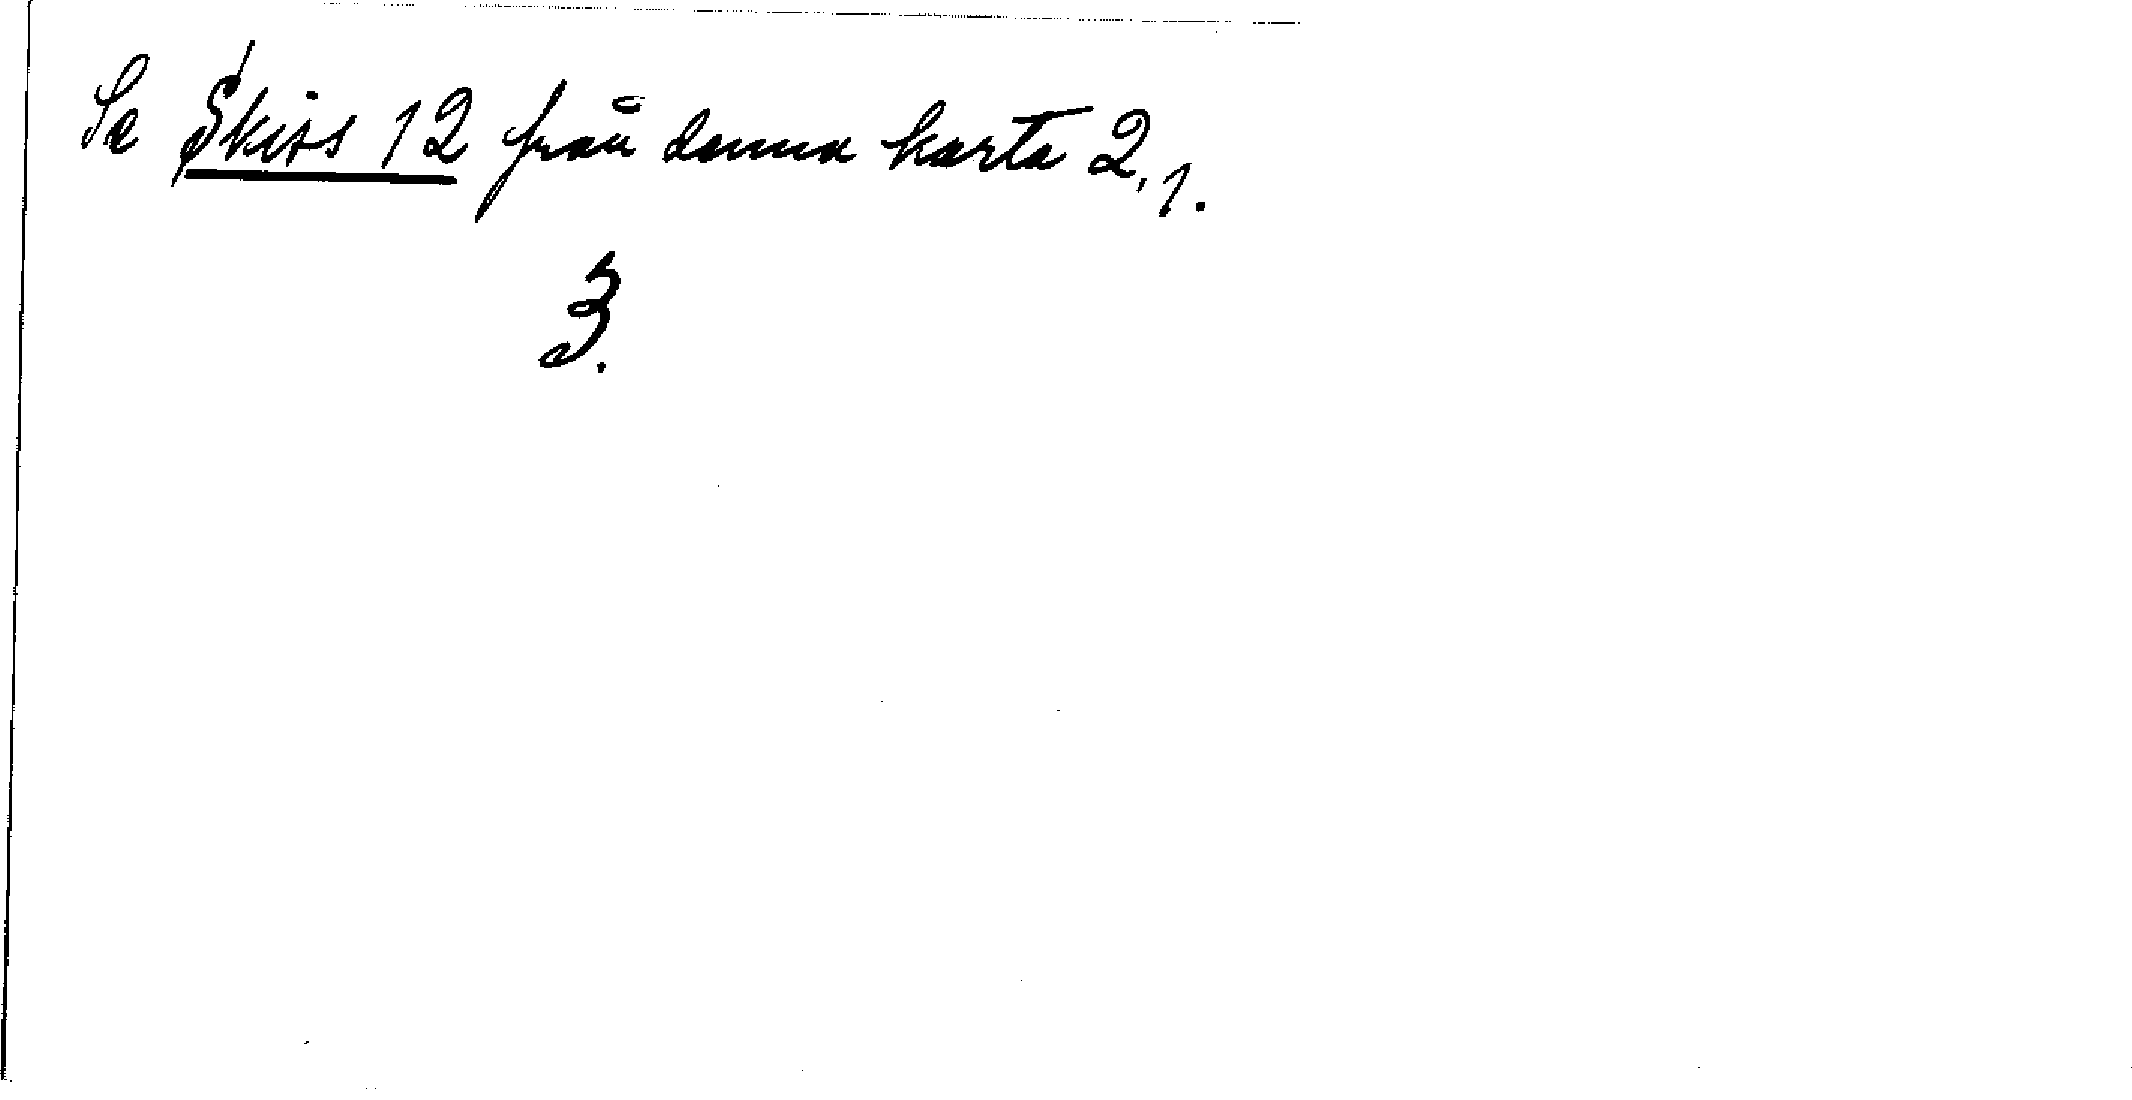 Se Skiss 12 från denna karta 2,1.
3.